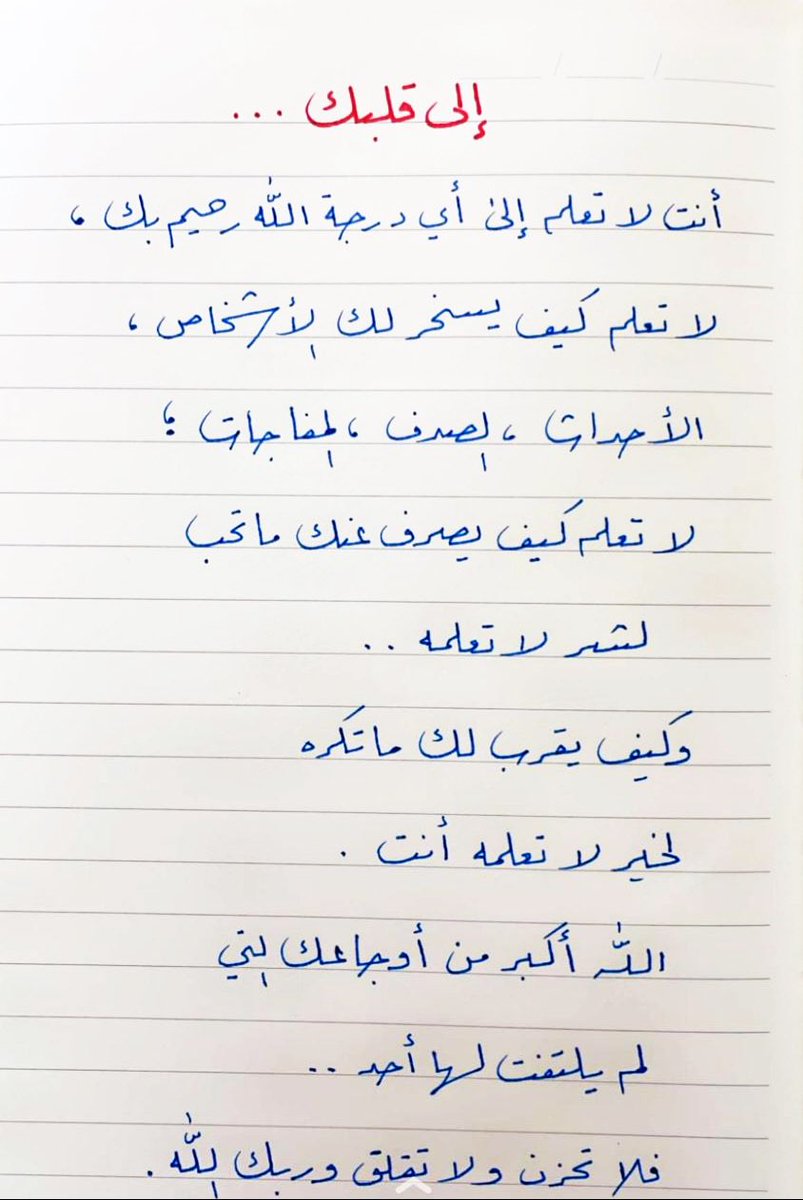 إلى قلبك ...
أنت لا تعلم إلى أي درجة الله رحيم بك ،
لا تعلم كيف يسخر لك الأشخاص ،
الأحداث ، الصدف ، المفاجات ؛
لا تعلم كيف يصرف عنك ما تحب
لشر لا تعلمه ..
وكيف يقرب لك ما تكره
لخير لا تعلمه أنت .
الله أكبر من أوجاعك التي
لم يلتفت لها أحد ..
فلا تحزن ولا تقلق وربك الله .